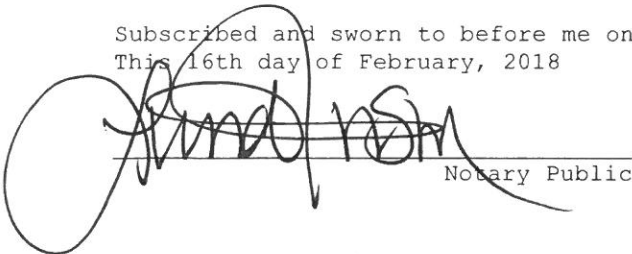 Subscribed and sworn to before me on
This 16th day of February, 2018
Notary Public